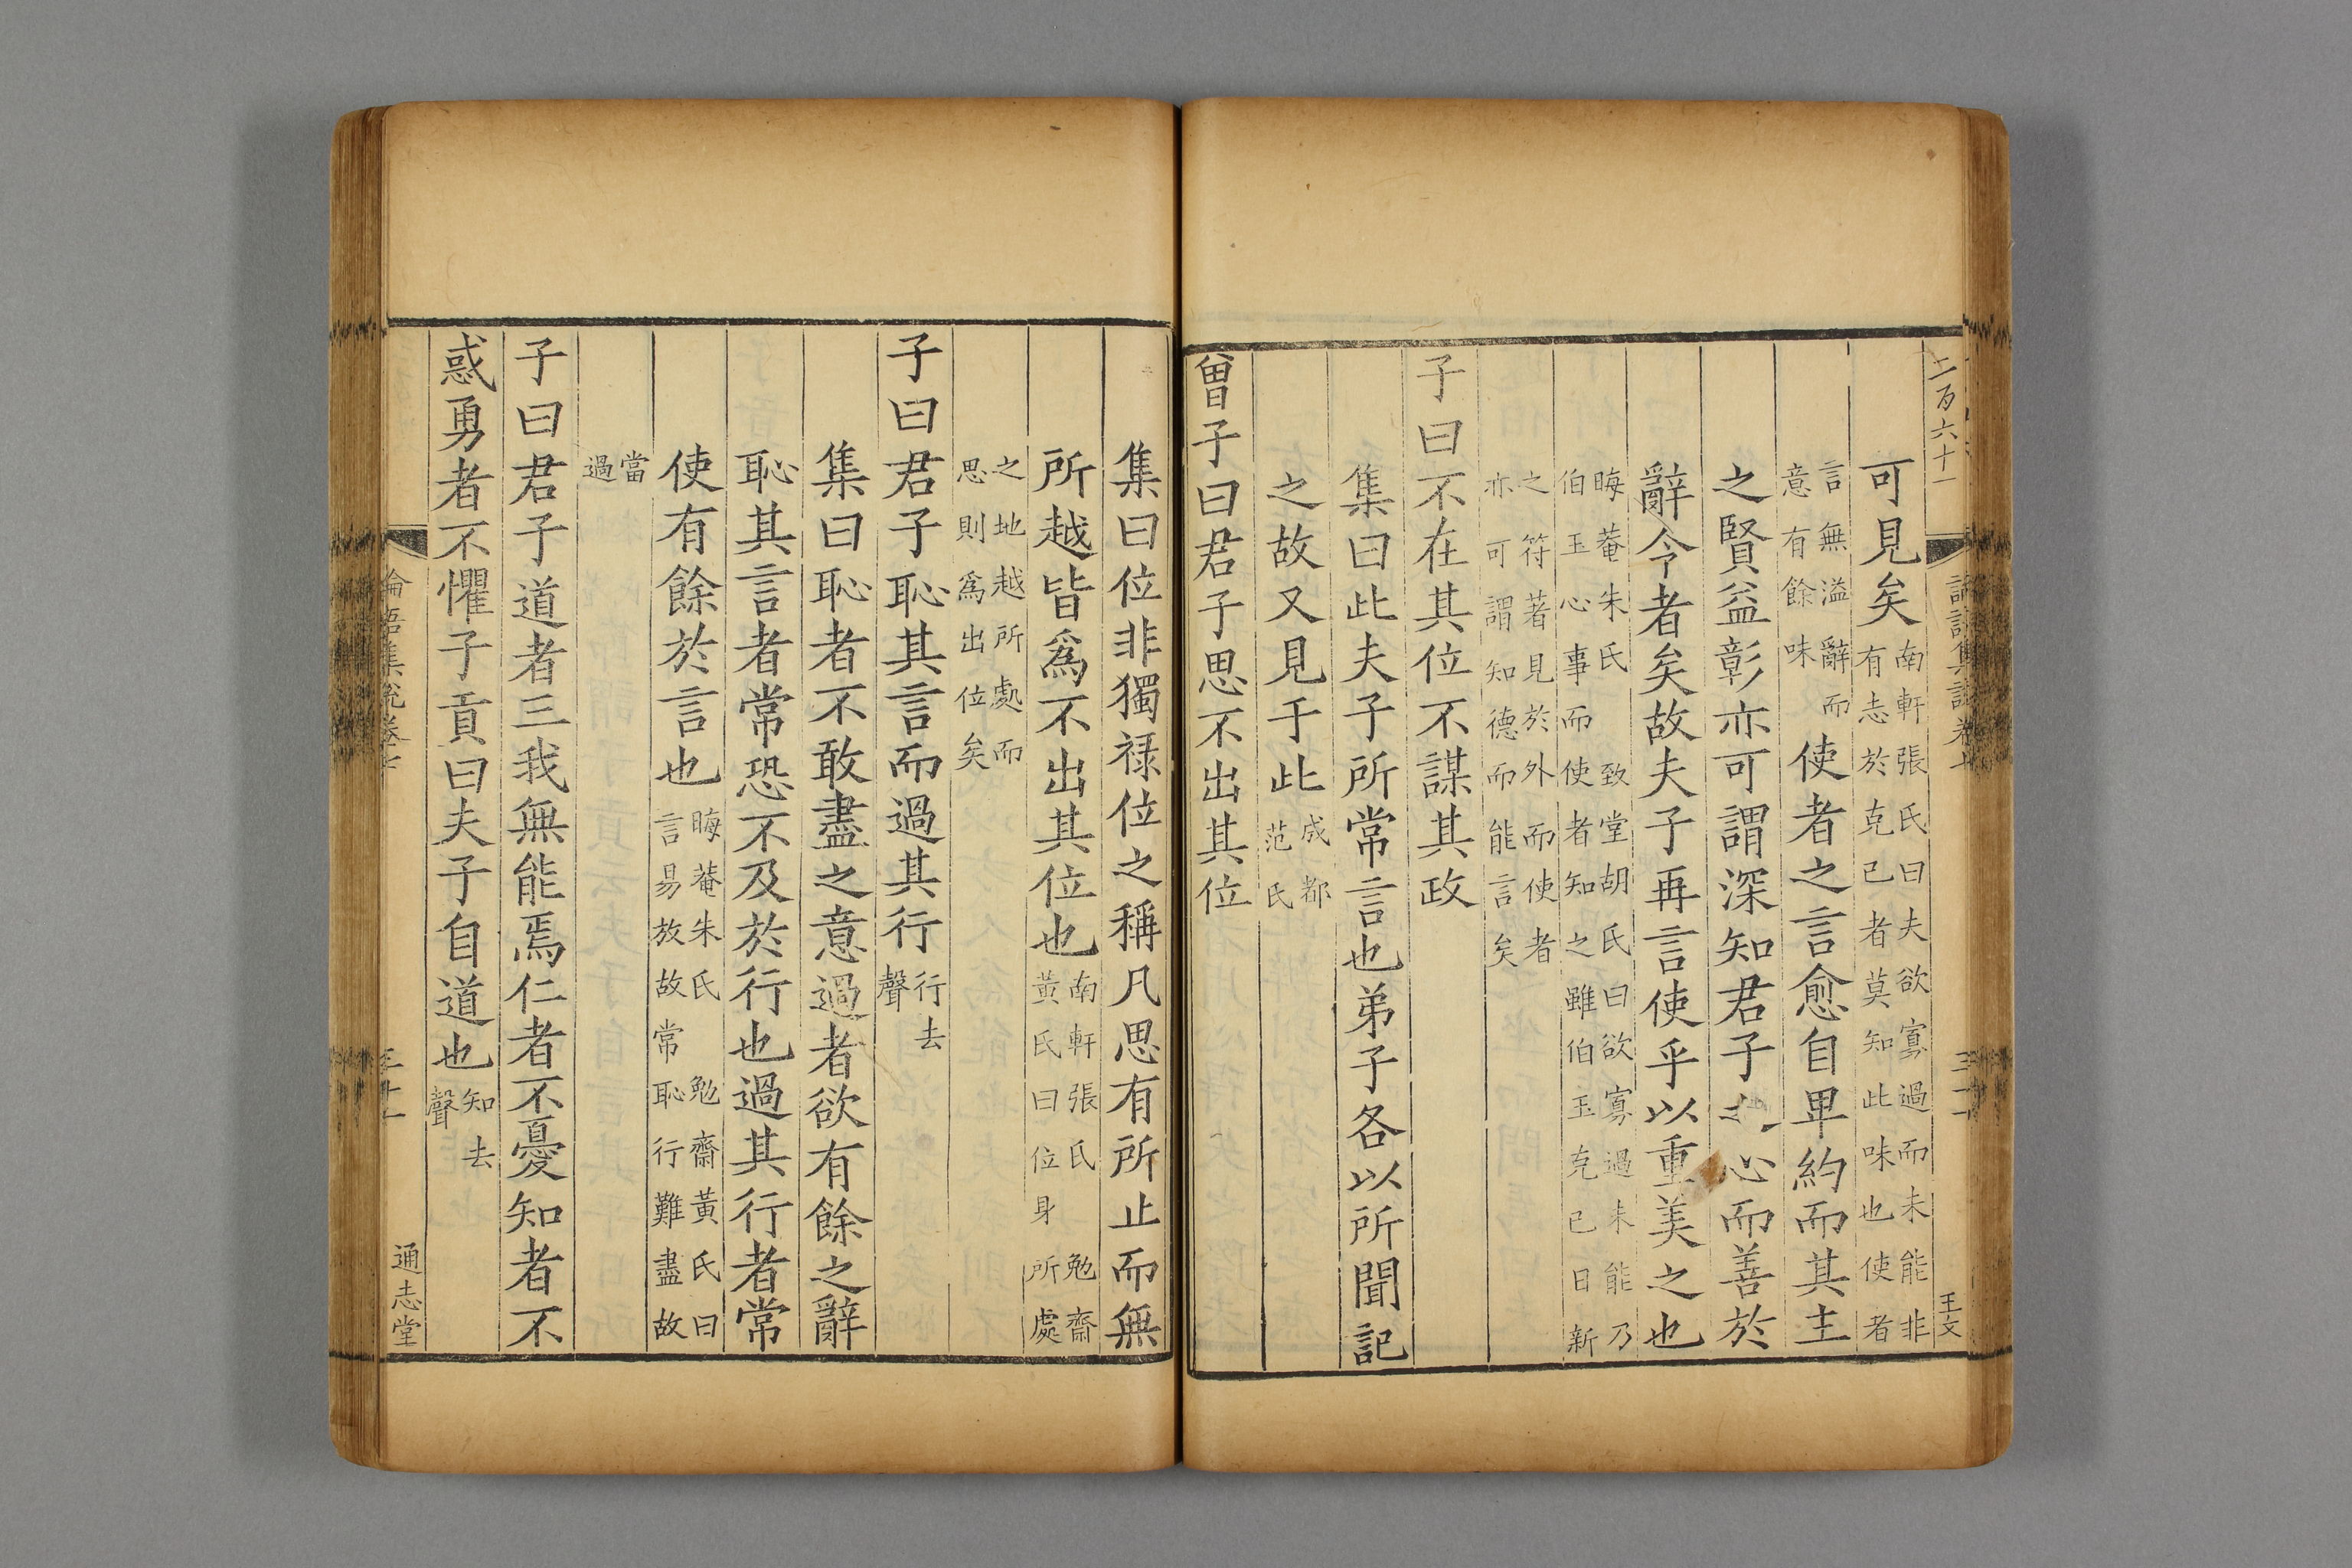 二百六十一
論語集說卷七
三十一
王文
可見矣南軒張氏曰夫欲寡過而未能非有志於克己者莫知此味也使者
言無溢辭而意有餘味使者之言愈自卑約而其主
之賢益彰亦可謂深知君子心而善於
辭令者矣故夫子再言使乎以重美之也
晦菴朱氏致堂胡氏曰欲寡過未能乃伯玉心事而使者知之雖伯玉克己日新
之符著見於外而使者亦可謂知德而能言矣
子曰不在其位不謀其政
集曰此夫子所常言也弟子各以所聞記
之故又見于此成都范氏
曾子曰君子思不出其位
集曰位非獨祿位之稱凡思有所止而無
所越皆爲不出其位也南軒張氏勉齋黃氏曰位身所處
之地越所處而思則爲出位矣
子曰君子恥其言而過其行行去聲
集曰恥者不敢盡之意過者欲有餘之辭
恥其言者常恐不及於行也過其行者常
使有餘於言也晦菴朱氏勉齋黃氏曰言易放故常恥行難盡故
當過
子曰君子道者三我無能焉仁者不憂知者不
惑勇者不懼子貢曰夫子自道也知去聲
論語集說卷七
三十一
通志堂